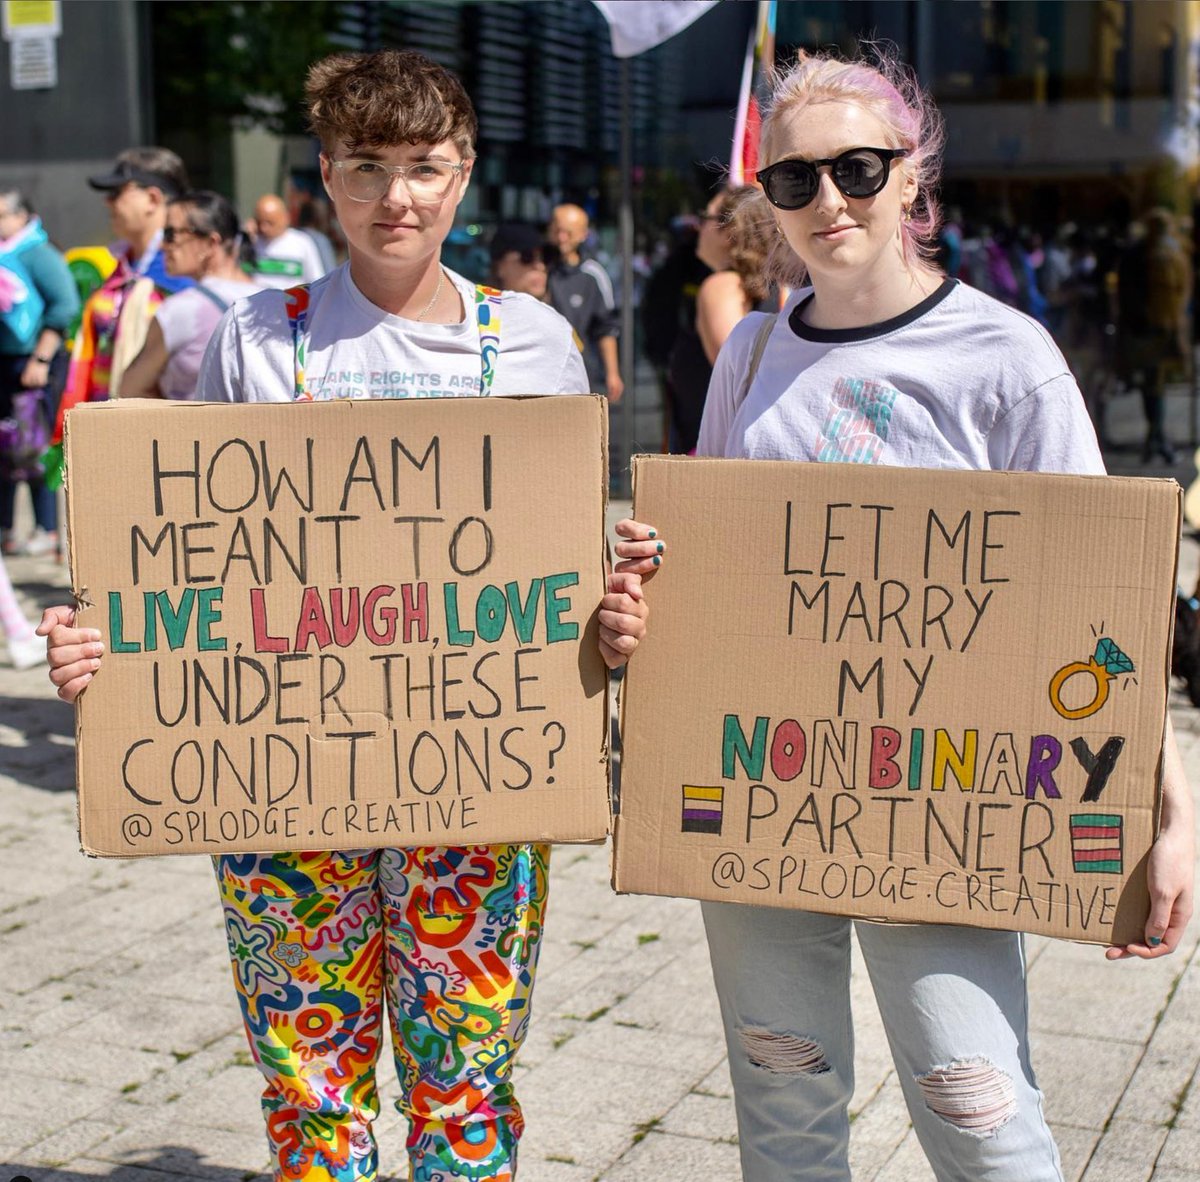 TRANS RIGHTS ARE
HOW AM I
MEANT TO
LIVE, LAUGH, LOVE
UNDER THESE
CONDITIONS?
@SPLODGE.CREATIVE
PROTECT
TRANS
YOUTH
LET ME
MARRY
MY
NONBINARY
PARTNER
@SPLODGE.CREATIVE